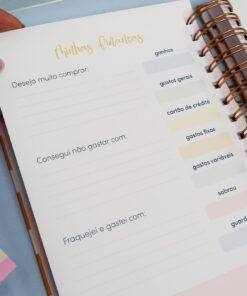 Minhas Finanças
Desejo muito comprar:
ganhos
gastos gerais
cartão de crédito
Consegui não gastar com:
gastos fixos
gastos variáveis
Fraquejei e gastei com:
sobrou